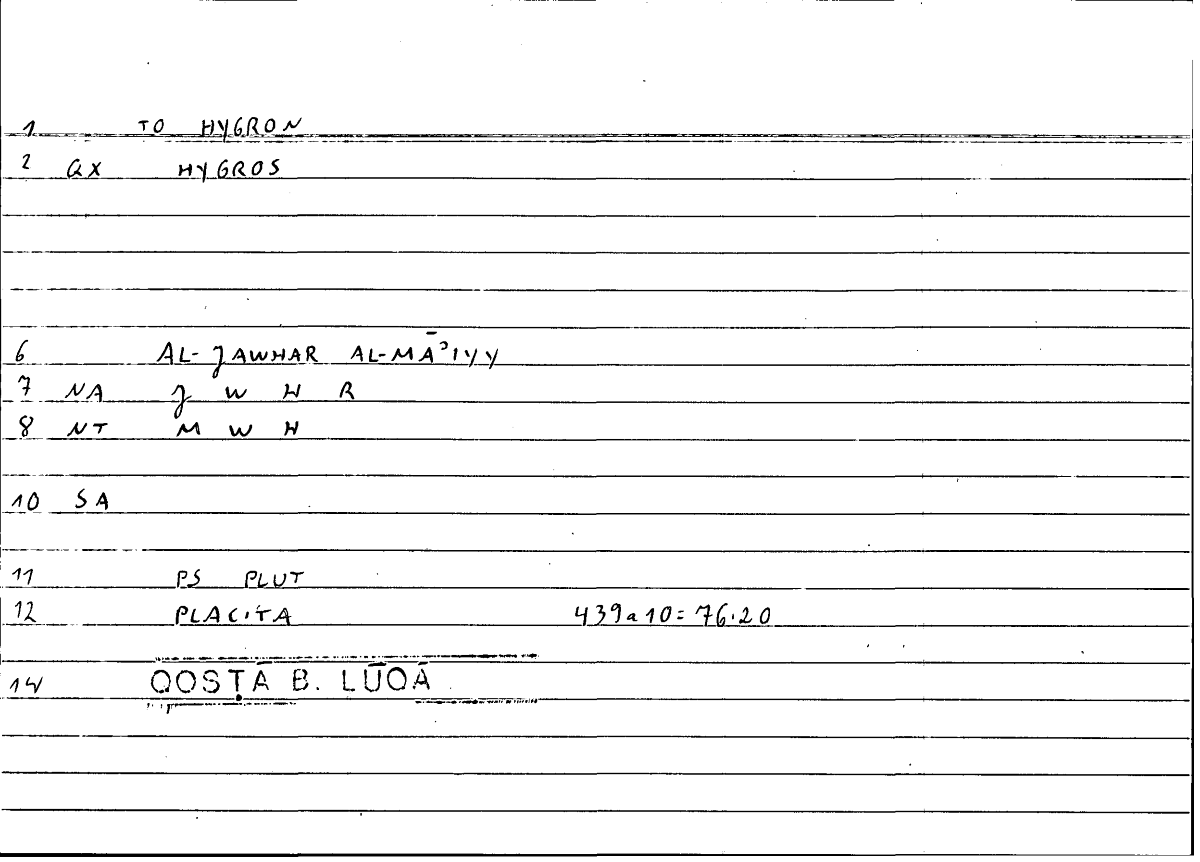 1 TO HYGRON
2 QX HYGROS
6 AL-JAWHAR AL-MĀʾIYY
7 NA J W H R
8 NT M W H
10 SA
11 PS PLUT
12 PLACITA 439a10=76.20
14 QOSṬĀ B. LŪQĀ